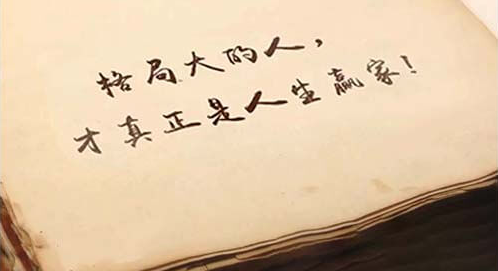 格局大的人，
才真正是人生赢家！